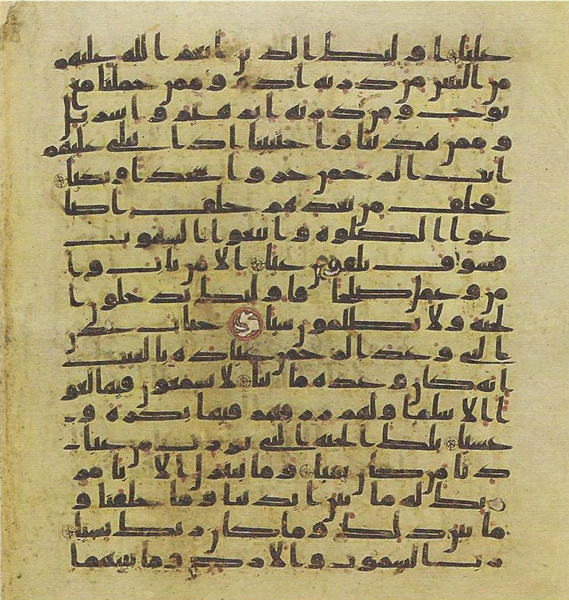 عليا اولئك الذين انعم الله عليهم
من النبين من ذرية ادم وممن حملنا مع
نوح ومن ذرية ابرهيم واسريل
وممن هدينا واجتبينا اذا تتلى عليهم
ايت الرحمن خروا سجدا وبكيا
فخلف من بعدهم خلف اضا
عوا الصلوه واتبعوا الشهوت
فسوف يلقون غيا الا من تاب وا
من وعمل صلحا فاولئك يدخلون ا
لجنه ولا يظلمون شيا جنات عدن
التي وعد الرحمن عباده بالغيب
انه كان وعده ماتيا لا يسمعون فيها لغو
ا الا سلما ولهم رزقهم فيها بكره و
عشيا تلك الجنه التي نورث من عبا
دنا من كان تقيا وما نتنزل الا بامر
ربك له ما بين ايدينا وما خلفنا و
ما بين ذلك وما كان ربك نسيا
رب السموت والارض وما بينهما